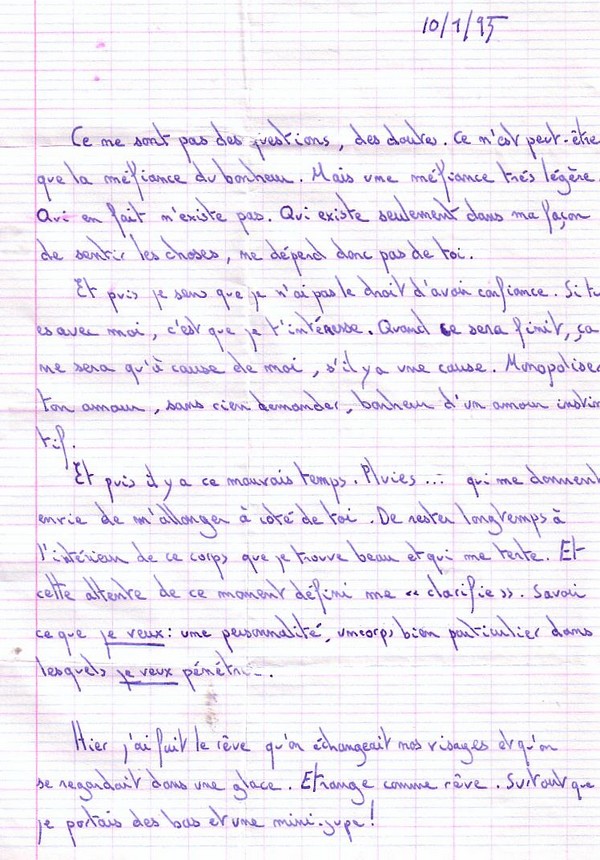 10/1/95
Ce ne sont pas des questions, des doutes. Ce n'est peut-être
que la méfiance du bonheur. Mais une méfiance trés légère.
Qui en fait n'existe pas. Qui existe seulement dans ma façon
de sentir les choses, ne dépend donc pas de toi.
Et puis je sens que je n'ai pas le droit d'avoir confiance. Si tu
es avec moi, c'est que je t'intéresse. Quand ce sera finit, ça
ne sera qu'à cause de moi, s'il y a une cause. Monopoliser
ton amour, sans rien demander, bonheur d'un amour instinc
tif.
Et puis il y a ce mauvais temps. Pluies... qui me donnent
envie de m'allonger à côté de toi. De rester longtemps à
l'intérieur de ce corps que je trouve beau et qui me tente. Et
cette attente de ce moment défini me « clarifie ». Savoir
ce que je veux : une personnalité, un corps bien particulier dans
lesquels je veux pénétrer.
Hier j'ai fait le rêve qu'on échangeait nos visages et qu'on
se regardait dans une glace. Etrange comme rêve. Surtout que
je portais des bas et une mini-jupe !